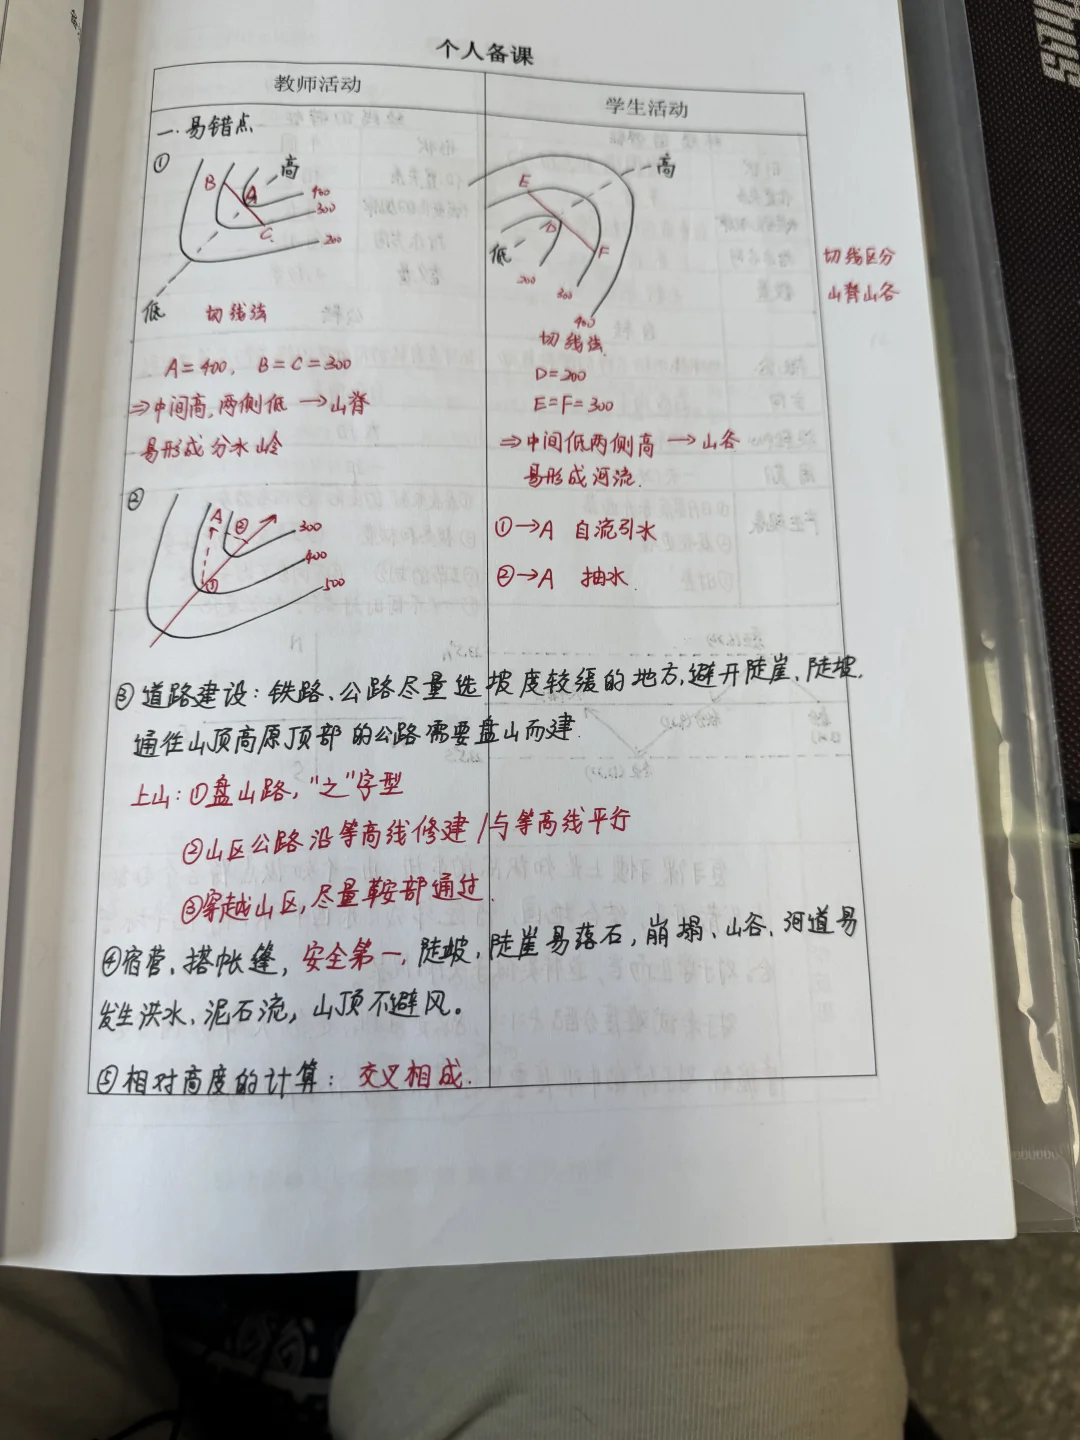 个人备课
教师活动
学生活动
一.易错点
①
B
高
A
400
300
C
200
低
切线法
A=400, B=C=300
⇒中间高,两侧低→山脊
易形成分水岭
高
E
D
低
F
200
300
400
切线法
D=200
E=F=300
⇒中间低两侧高→山谷
易形成河流.
切线区分
山脊山谷
②
A
②
300
400
①
500
①→A 自流引水
②→A 抽水.
③道路建设:铁路、公路尽量选坡度较缓的地方,避开陡崖、陡坡.
通往山顶高原顶部的公路需要盘山而建.
上山:①盘山路,"之"字型
②山区公路沿等高线修建/与等高线平行
③穿越山区,尽量鞍部通过.
④宿营、搭帐篷,安全第一,陡坡、陡崖易落石,崩塌、山谷、河道易
发生洪水、泥石流,山顶不避风。
⑤相对高度的计算:交叉相成.